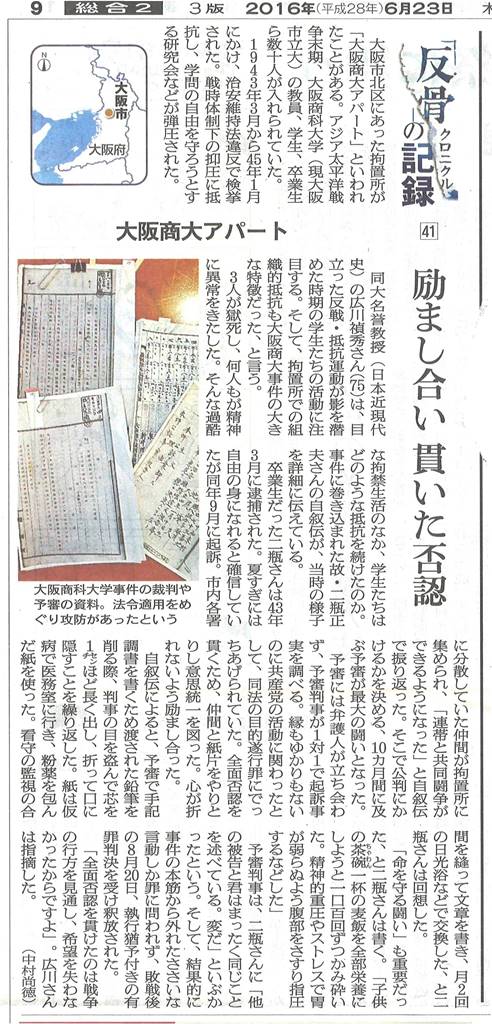 9 総合2 3版 2016年(平成28年)6月23日 木
「反骨」の記録
クロニクル
41
励まし合い 貫いた否認
大阪商大アパート
大阪市北区にあった拘置所が
「大阪商大アパート」といわれ
たことがある。アジア太平洋戦
争末期、大阪商科大学(現大阪
市立大)の教員、学生、卒業生
ら数十人が入れられていた。
1943年3月から45年1月
にかけ、治安維持法違反で検挙
された。戦時体制下の抑圧に抵
抗し、学問の自由を守ろうとす
る研究会などが弾圧された。
N
大阪市
大阪府
同大名誉教授(日本近現代
史)の広川禎秀さん(75)は、目
立った反戦・抵抗運動が影を潜
めた時期の学生たちの活動に注
目する。そして、拘置所での組
織的抵抗も大阪商大事件の大き
な特徴だった、と言う。
3人が獄死し、何人もが精神
に異常をきたした。そんな過酷
な拘禁生活のなか、学生たちは
どのような抵抗を続けたのか。
事件に巻き込まれた故・二瓶正
夫さんの自叙伝が、当時の様子
を詳細に伝えている。
卒業生だった二瓶さんは43年
3月に逮捕された。夏すぎには
自由の身になれると確信してい
たが同年9月に起訴。市内各署
大阪商科大学事件の裁判や
予審の資料。法令適用をめ
ぐり攻防があったという
に分散していた仲間が拘置所に
集められ、「連帯と共同闘争が
できるようになった」と自叙伝
で振り返った。そこで公判にか
けるかを決める、10カ月間に及
ぶ予審が最大の闘いとなった。
予審には弁護人が立ち会わ
ず、予審判事が1対1で起訴事
実を調べる。縁もゆかりもない
のに共産党の活動に関わったと
して、同法の目的遂行罪にでっ
ちあげられていた。全面否認を
貫くため、仲間と紙片をやりと
りし意思統一を図った。心が折
れないよう励まし合った。
自叙伝によると、予審で手記
調書を書くため渡された鉛筆を
削る際、判事の目を盗んで芯を
1センチほど長く出し、折って口に
隠すことを繰り返した。紙は仮
病で医務室に行き、粉薬を包ん
だ紙を使った。看守の監視の合
間を縫って文章を書き、月2回
の日光浴などで交換した、と二
瓶さんは回想した。
「命を守る闘い」も重要だっ
た、と二瓶さんは書く。「子供
の茶碗一杯の麦飯を全部栄養に
しようと一口百回ずつかみ砕い
た。精神的重圧やストレスで胃
が弱らぬよう腹部をさすり指圧
するなどした」
予審判事は、二瓶さんに「他
の被告と君はまったく同じこと
を述べている。変だ」といぶか
ったという。そして、結果的に
事件の本筋から外れたささいな
言動しか罪に問われず、敗戦後
の8月20日、執行猶予付きの有
罪判決を受け釈放された。
「全面否認を貫けたのは戦争
の行方を見通し、希望を失わな
かったからですよ」。広川さん
は指摘した。
(中村尚徳)